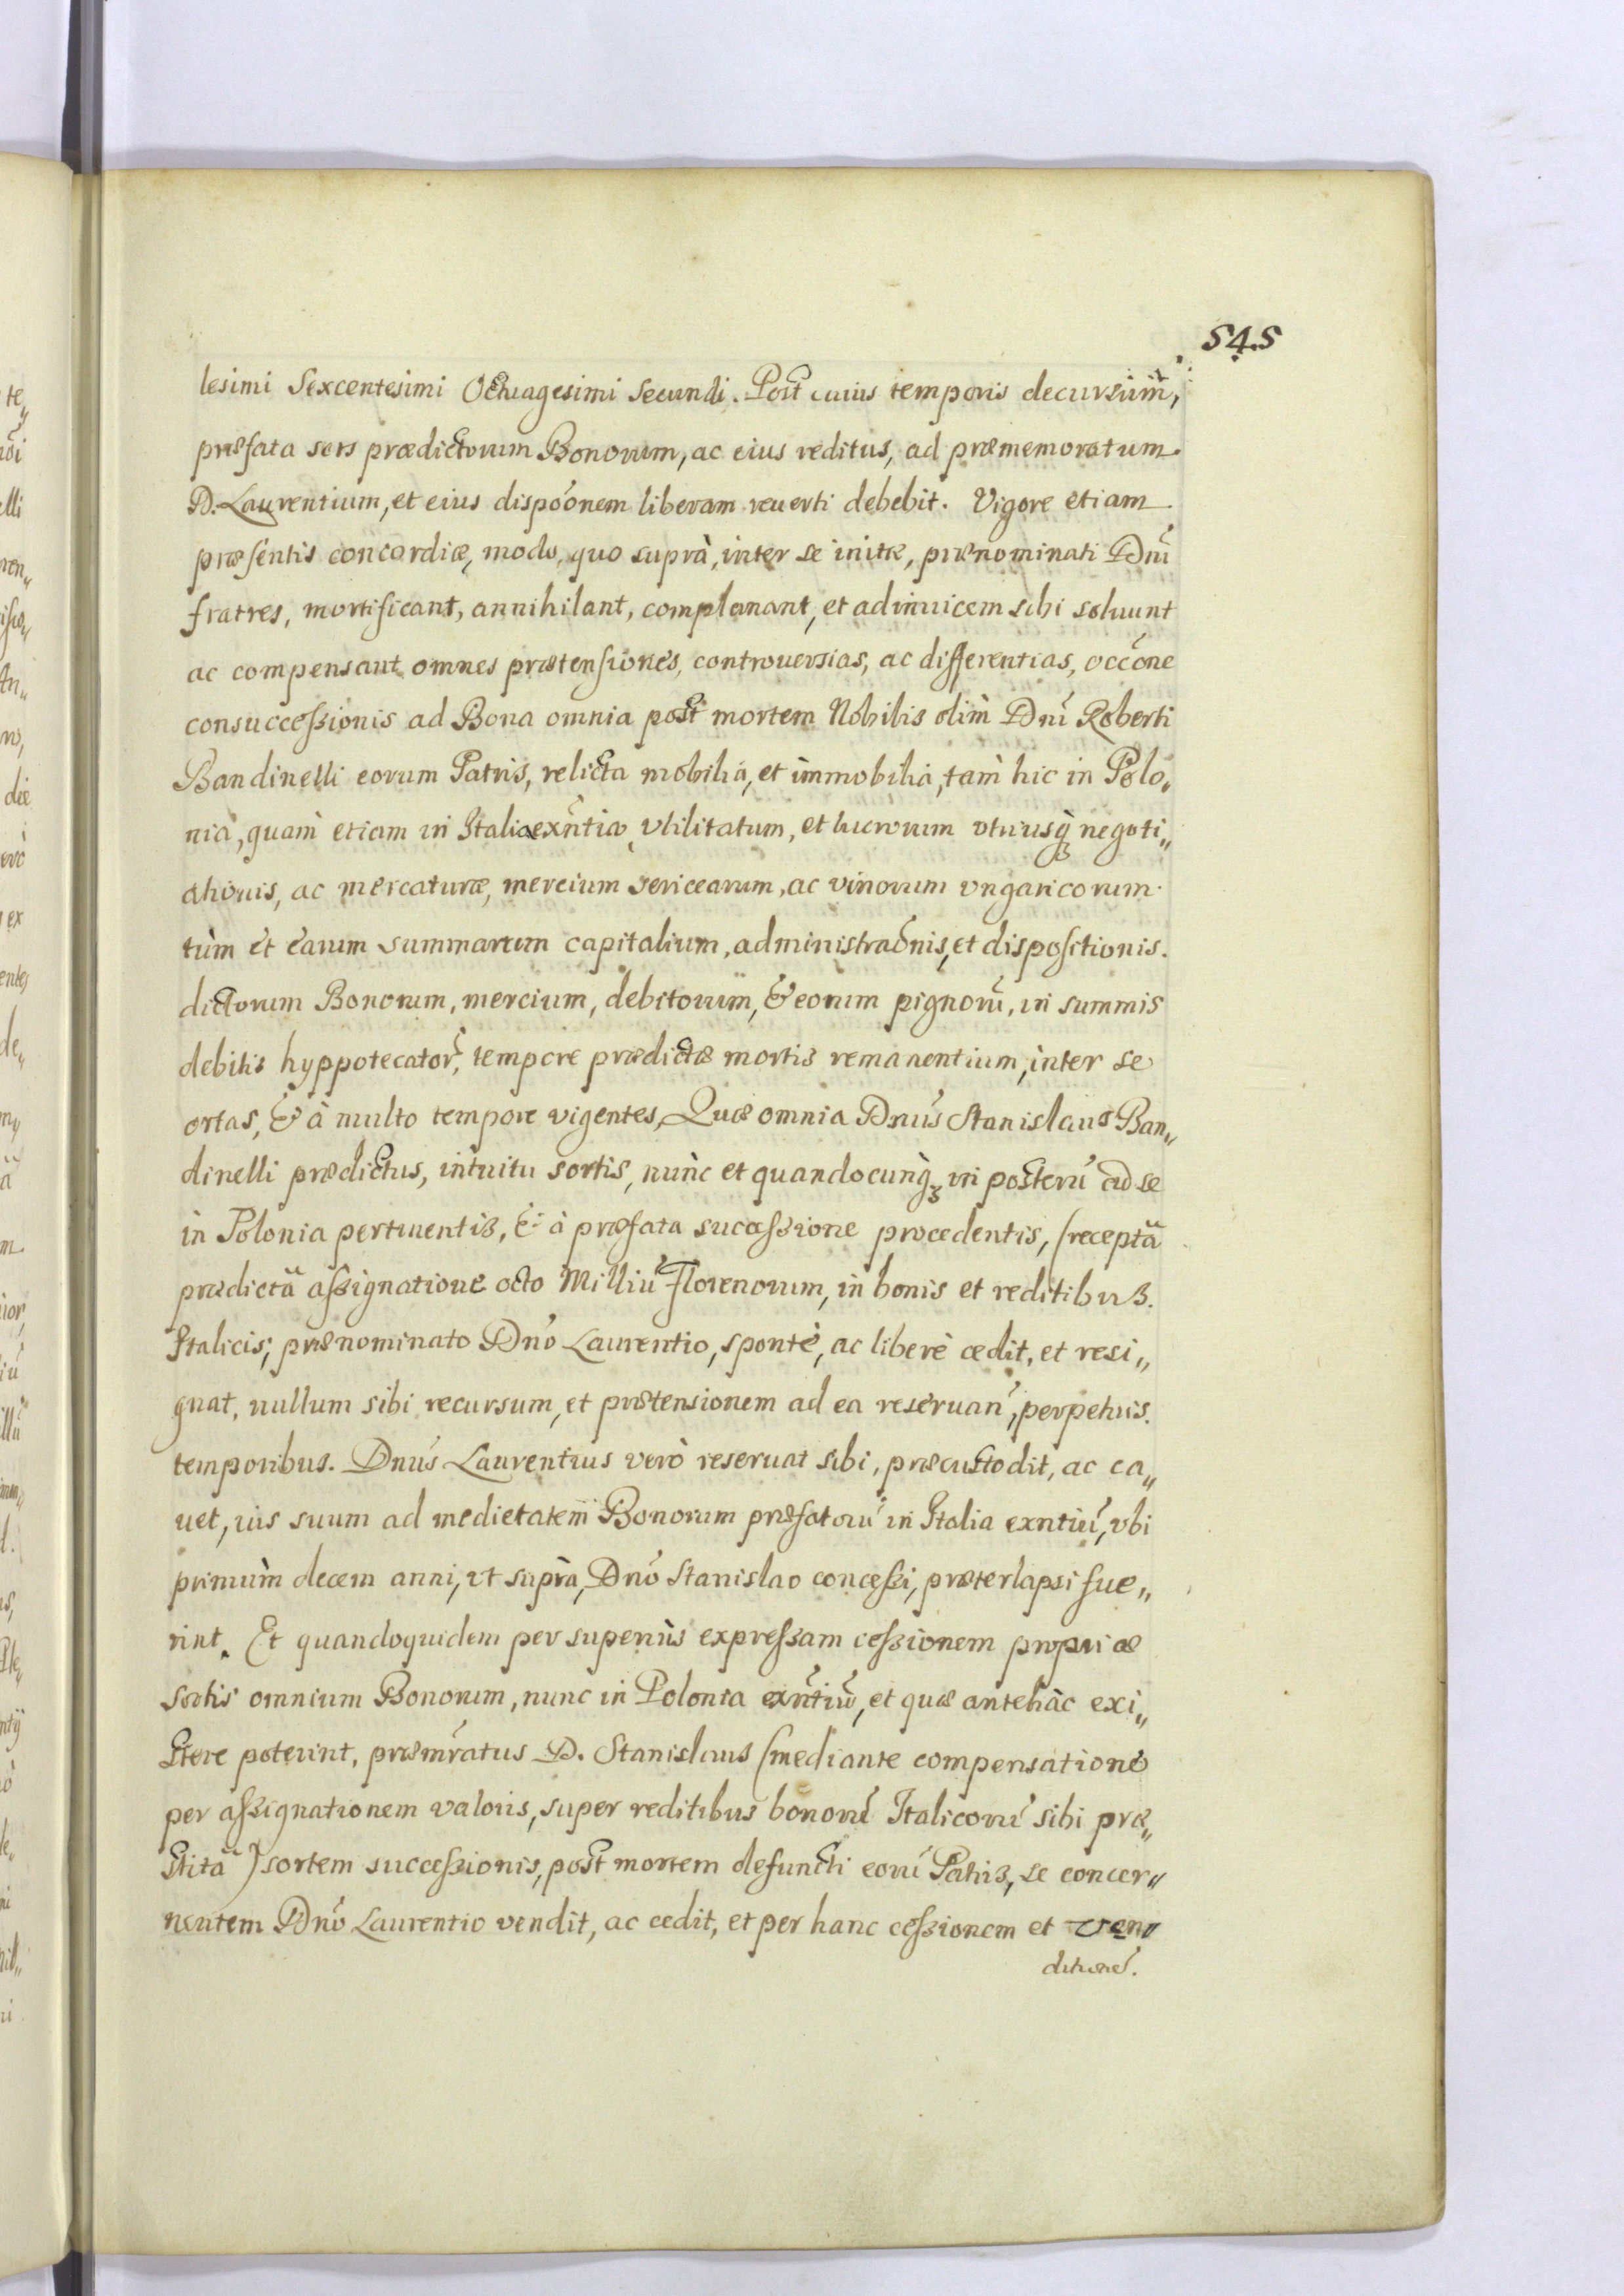 545
lesimi Sexcentesimi Octuagesimi Secundi. Post cuius temporis decursum̄,
præfata sors prædictorum Bonorum, ac eius reditus, ad præmemoratum
D. Laurentium, et eius dispoōnem liberam reuerti debebit. Vigore etiam
præsentis concordiæ, modo, quo suprà, inter se initæ, prænominati Dnĩ
fratres, mortificant, annihilant, complanant, et adinuicem sibi soluunt
ac compensant omnes prætensiones, controuersias, ac differentias, occõne
consuccessionis ad Bona omnia post mortem Nobilis olim Dnĩ Roberti
Bandinelli eorum Patris, relicta mobilia, et immobilia, tam hic in Polo„
nia, quam etiam in Italia exñtia, vtilitatum, et lucrorum vtriusqꝫ negoti„
ationis, ac mercaturæ, mercium sericearum, ac vinorum vngaricorum
tùm et earum summarum capitalium, administraõnis, et dispositionis.
dictorum Bonorum, mercium, debitorum̄, & eorum pignorũ, in summis
debitis hyppotecatorũ, tempore prædictæ mortis remanentium, inter se
ortas, & à multo tempore vigentes, Quæ omnia Dnũs Stanislaus Ban„
dinelli prædictus, intuitu sortis, nùnc et quandocunqꝫ in posterũ ad se
in Polonia pertinentis, & à præfata successione procedentis, (receptã
prædictã assignatione octo Milliũ Florenorum, in bonis et reditibus.
Italicis, prænominato Dnõ Laurentio, sponte, ac liberè cedit, et resi„
gnat, nullum sibi recursum, et prætensionem ad ea reseruañ, perpetuis
temporibus. Dnũs Laurentius verò reseruat sibi, præcustodit, ac ca„
uet, ius suum ad medietatem̄ Bonorum præfatorũ in Italia exntiũ, vbi
primùm decem anni, vt supra, Dnõ Stanislao concessi, præterlapsi fue„
rint. Et quandoquidem per superiùs expressam cessionem propriæ
sortis omnium Bonorum, nunc in Polonia exñtiũ, et quæ antehàc exi„
stere poterint, præmr̃atus D. Stanislaus (mediante compensatione
per assignationem valoris, super reditibus bonorũ Italicorũ sibi præ„
stitã) sortem successionis, post mortem defuncti eorũ Patris, se concer„
nentem Dnõ Laurentio vendit, ac cedit, et per hanc cessionem et ven„
ditionẽ.